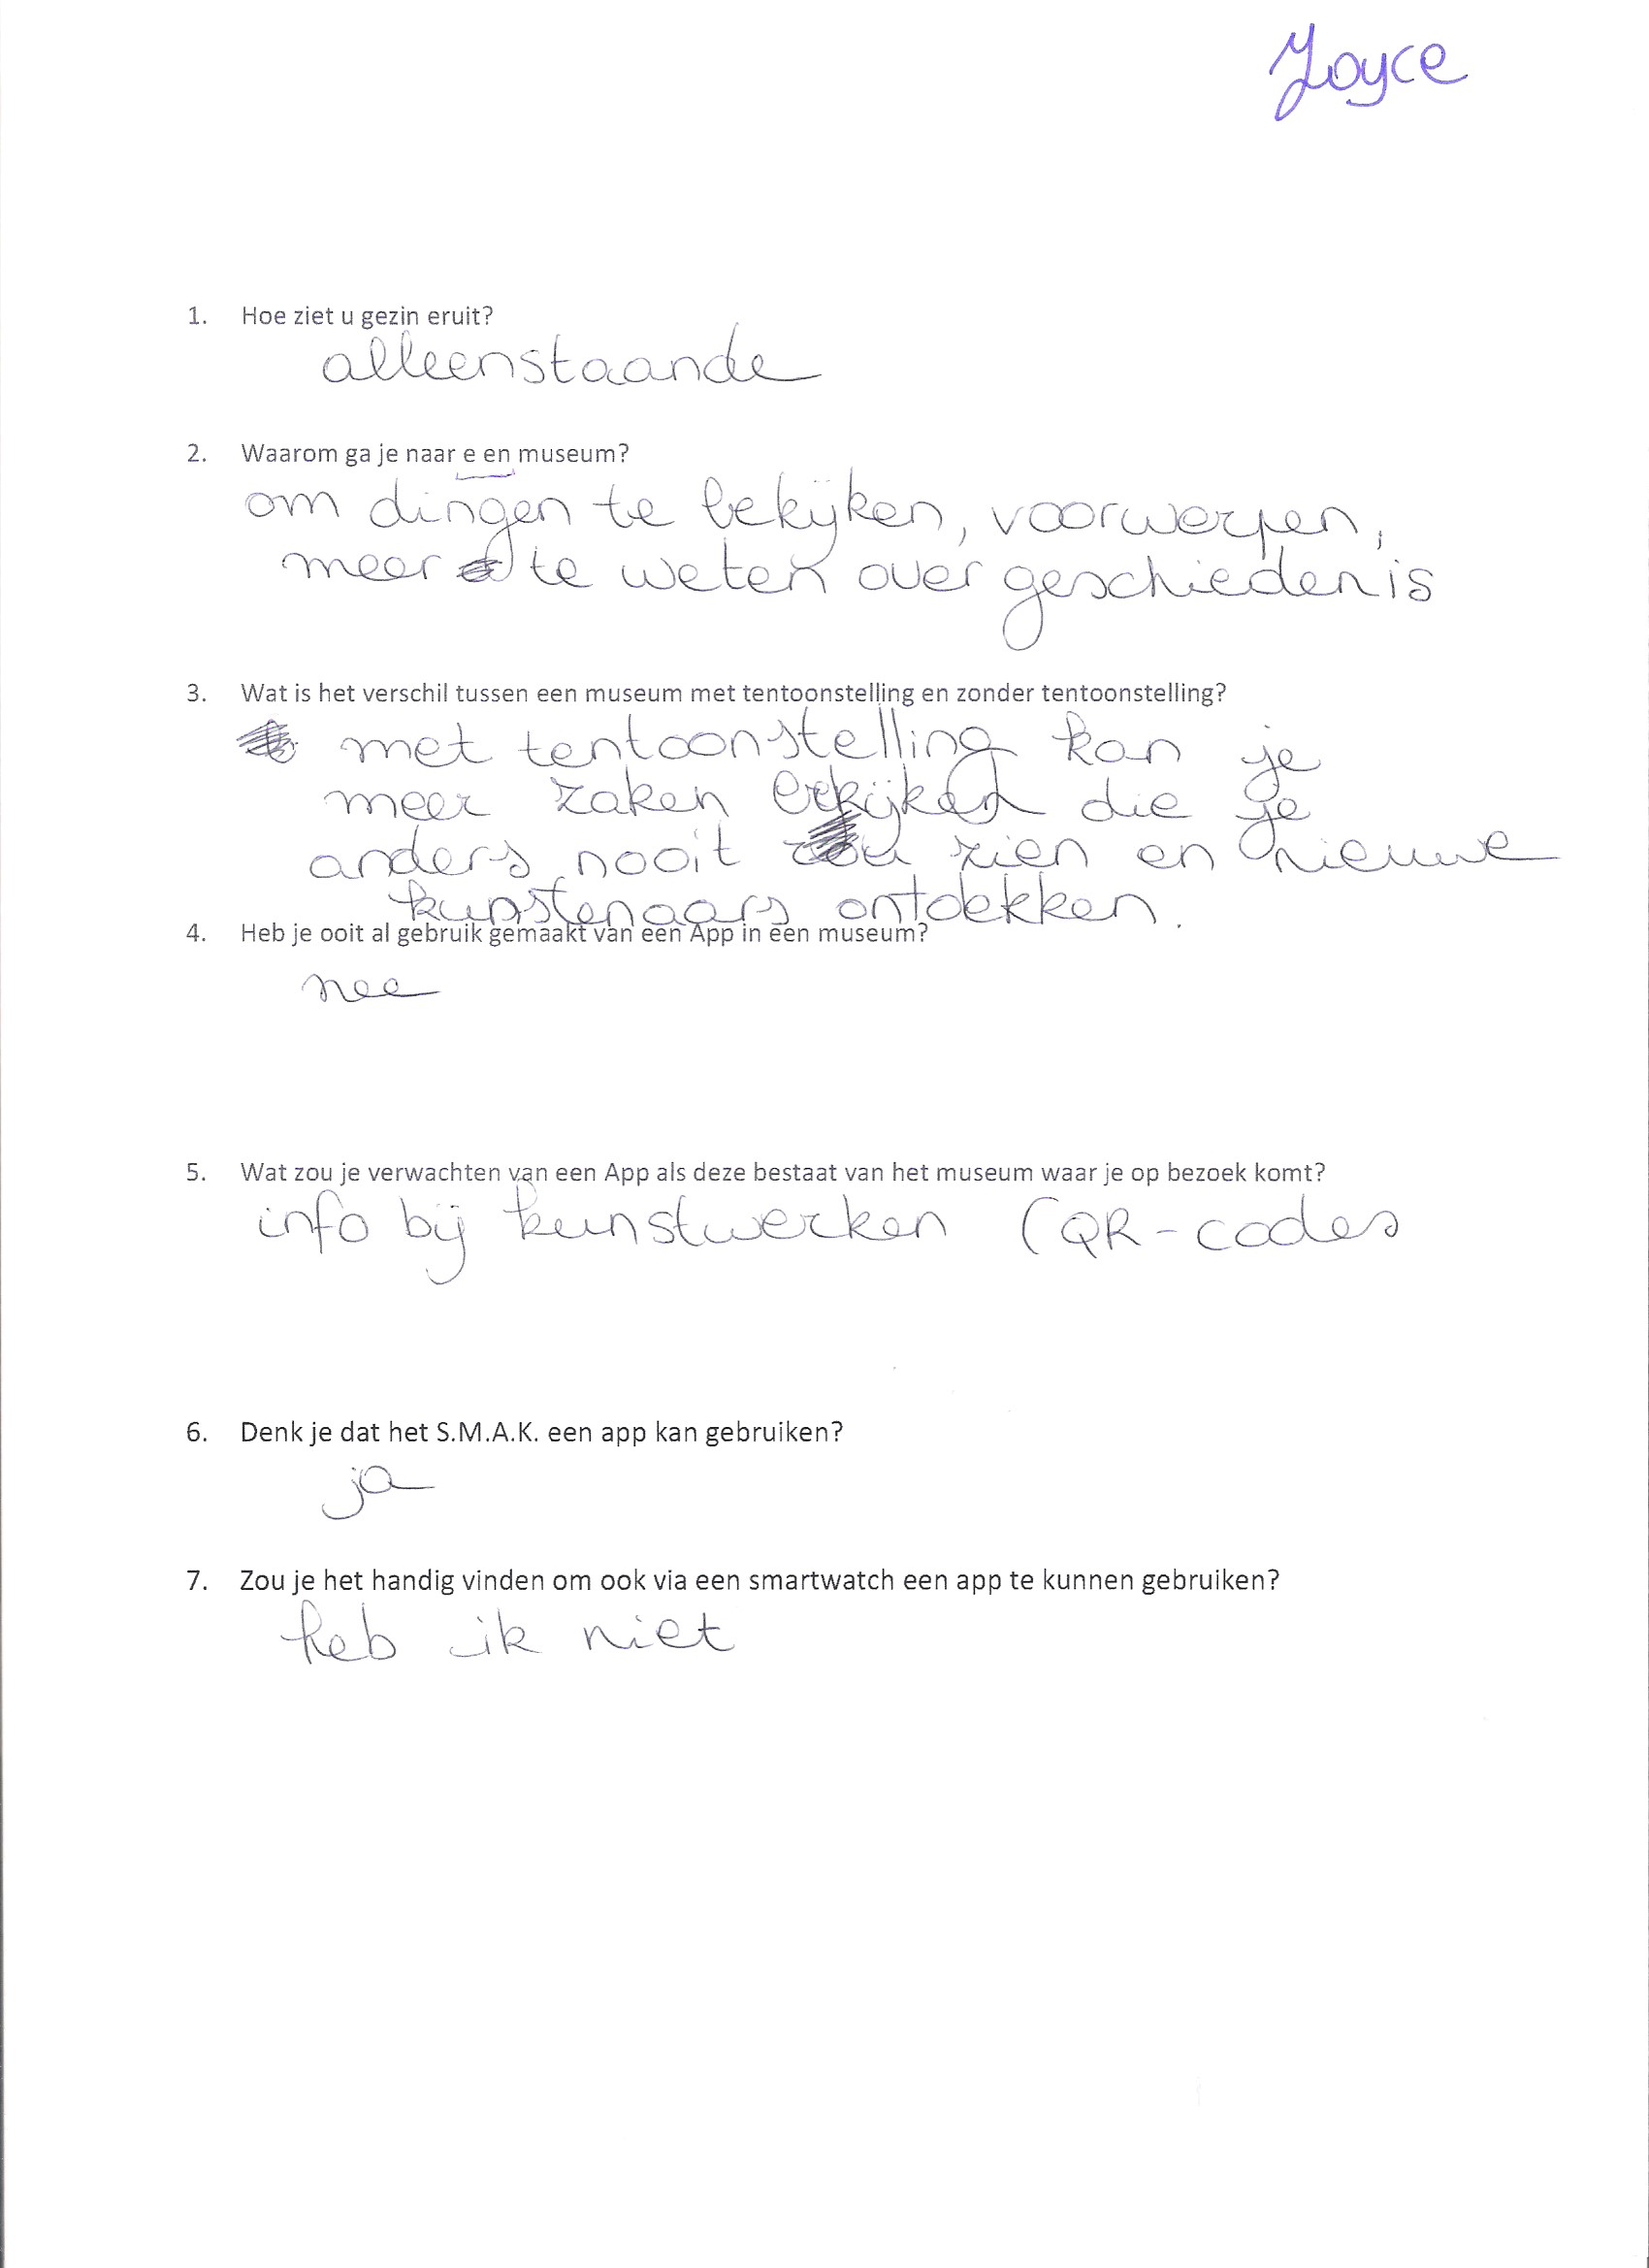 Joyce
1. Hoe ziet u gezin eruit?
alleenstaande
2. Waarom ga je naar e en museum?
om dingen te bekijken, voorwerpen,
meer te weten over geschiedenis
3. Wat is het verschil tussen een museum met tentoonstelling en zonder tentoonstelling?
met tentoonstelling kan je
meer zaken bekijken die je
anders nooit zou zien en nieuwe
kunstenaars ontdekken.
4. Heb je ooit al gebruik gemaakt van een App in een museum?
nee
5. Wat zou je verwachten van een App als deze bestaat van het museum waar je op bezoek komt?
info bij kunstwerken (QR-codes
6. Denk je dat het S.M.A.K. een app kan gebruiken?
ja
7. Zou je het handig vinden om ook via een smartwatch een app te kunnen gebruiken?
heb ik niet